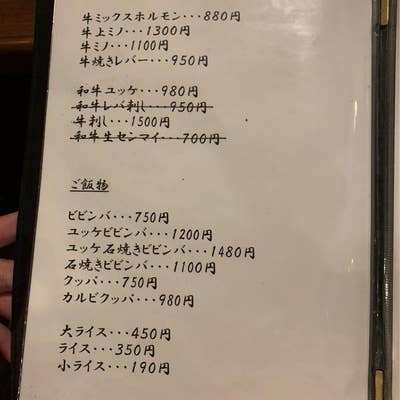 牛ミックスホルモン・・・880円
牛上ミノ・・・1300円
牛ミノ・・・1100円
牛焼きレバー・・・950円
和牛ユッケ・・・980円
和牛レバ刺し・・・950円
牛刺し・・・1500円
和牛生センマイ・・・700円
ご飯物
ビビンバ・・・750円
ユッケビビンバ・・・1200円
ユッケ石焼きビビンバ・・・1480円
石焼きビビンバ・・・1100円
クッパ・・・750円
カルビクッパ・・・980円
大ライス・・・450円
ライス・・・350円
小ライス・・・190円